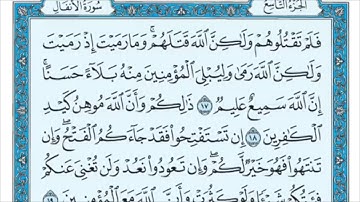 الجزء التاسع سورة الأنفال
فَلَمْ تَقْتُلُوهُمْ وَلَٰكِنَّ ٱللَّهَ قَتَلَهُمْ ۚ وَمَا رَمَيْتَ إِذْ رَمَيْتَ
وَلَٰكِنَّ ٱللَّهَ رَمَىٰ وَلِيُبْلِيَ ٱلْمُؤْمِنِينَ مِنْهُ بَلَآءً حَسَنًا ۚ
إِنَّ ٱللَّهَ سَمِيعٌ عَلِيمٌ ١٧ ذَٰلِكُمْ وَأَنَّ ٱللَّهَ مُوهِنُ كَيْدِ
ٱلْكَٰفِرِينَ ١٨ إِن تَسْتَفْتِحُوا۟ فَقَدْ جَآءَكُمُ ٱلْفَتْحُ ۖ وَإِن
تَنتَهُوا۟ فَهُوَ خَيْرٌ لَّكُمْ ۖ وَإِن تَعُودُوا۟ نَعُدْ وَلَن تُغْنِيَ عَنكُمْ
فِئَتُكُمْ شَيْـًٔا وَلَوْ كَثُرَتْ وَأَنَّ ٱللَّهَ مَعَ ٱلْمُؤْمِنِينَ ١٩